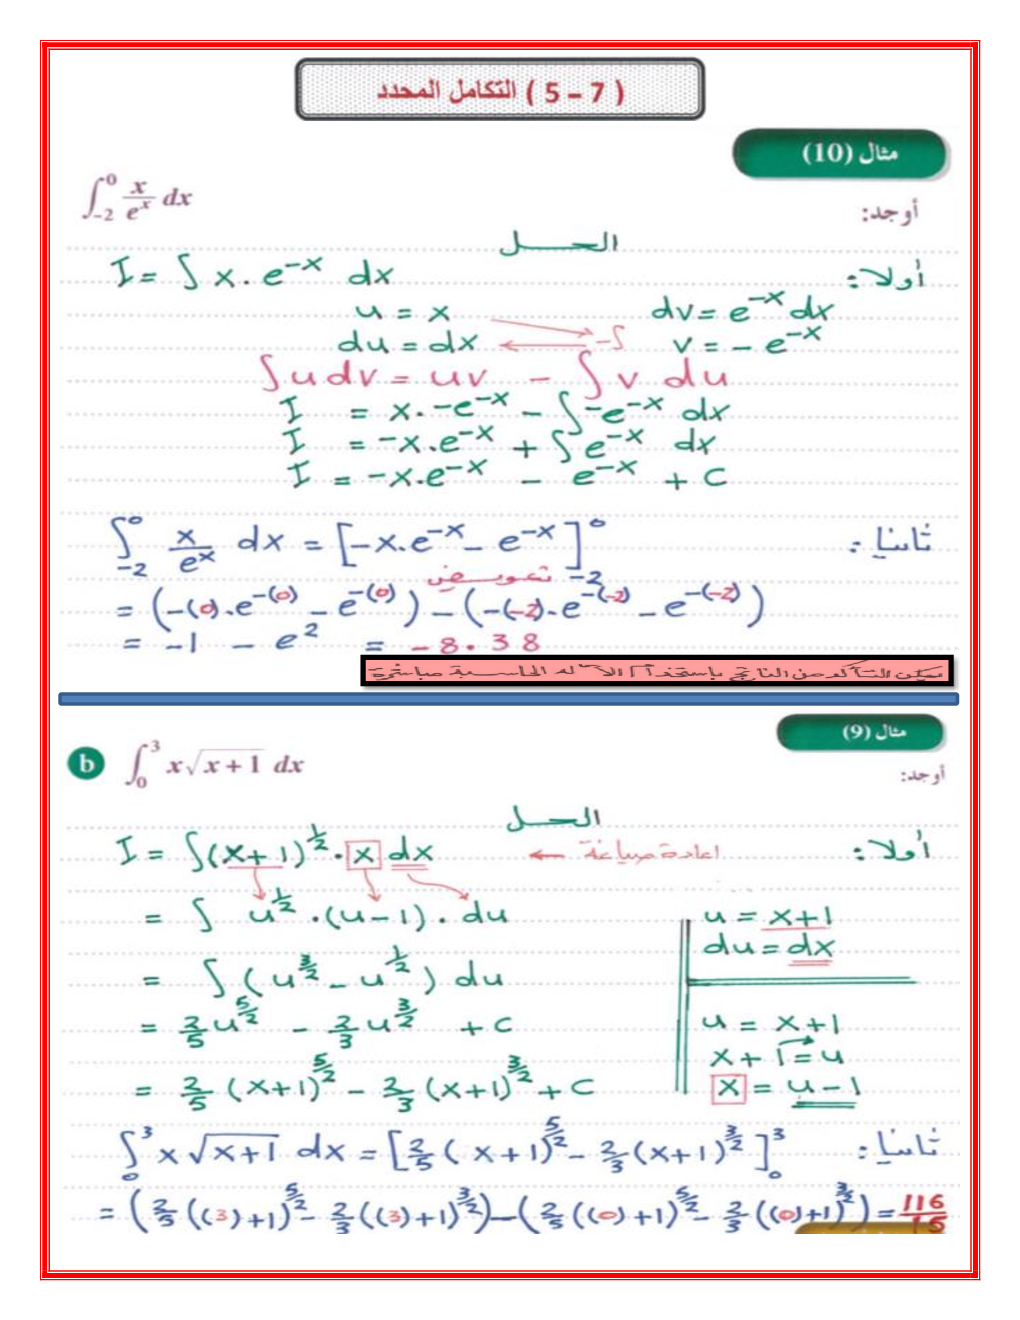 ( 5 – 7 ) التكامل المحدد
مثال (10)
أوجد: ∫₋₂⁰ x/eˣ dx
الحل
أولا: I = ∫ x . e^(-x) dx
u = x    dv = e^(-x) dx
du = dx  -∫  v = - e^(-x)
∫ u dv = uv - ∫ v du
I = x . -e^(-x) - ∫ -e^(-x) dx
I = -x . e^(-x) + ∫ e^(-x) dx
I = -x . e^(-x) - e^(-x) + C
ثانيا: ∫₋₂⁰ x/eˣ dx = [-x . e^(-x) - e^(-x)]₋₂⁰
تعويض
= (-(0) . e^(-(0)) - e^(-(0))) - (-(-2) . e^(-(-2)) - e^(-(-2)))
= -1 - e² = -8.38
يمكن التأكد من الناتج باستخدام الآله الحاسبة مباشرة
مثال (9)
أوجد:
b ∫₀³ x√(x + 1) dx
الحل
أولا: I = ∫ (x+1)^(1/2) . x dx ← اعادة صياغة
= ∫ u^(1/2) . (u-1) . du
u = x+1
du = dx
= ∫ (u^(3/2) - u^(1/2)) du
= 2/5 u^(5/2) - 2/3 u^(3/2) + C
u = x+1
x + 1 = u
x = u - 1
= 2/5 (x+1)^(5/2) - 2/3 (x+1)^(3/2) + C
ثانيا: ∫₀³ x√(x+1) dx = [2/5 (x+1)^(5/2) - 2/3 (x+1)^(3/2)]₀³
= (2/5 ((3)+1)^(5/2) - 2/3 ((3)+1)^(3/2)) - (2/5 ((0)+1)^(5/2) - 2/3 ((0)+1)^(3/2)) = 116/15